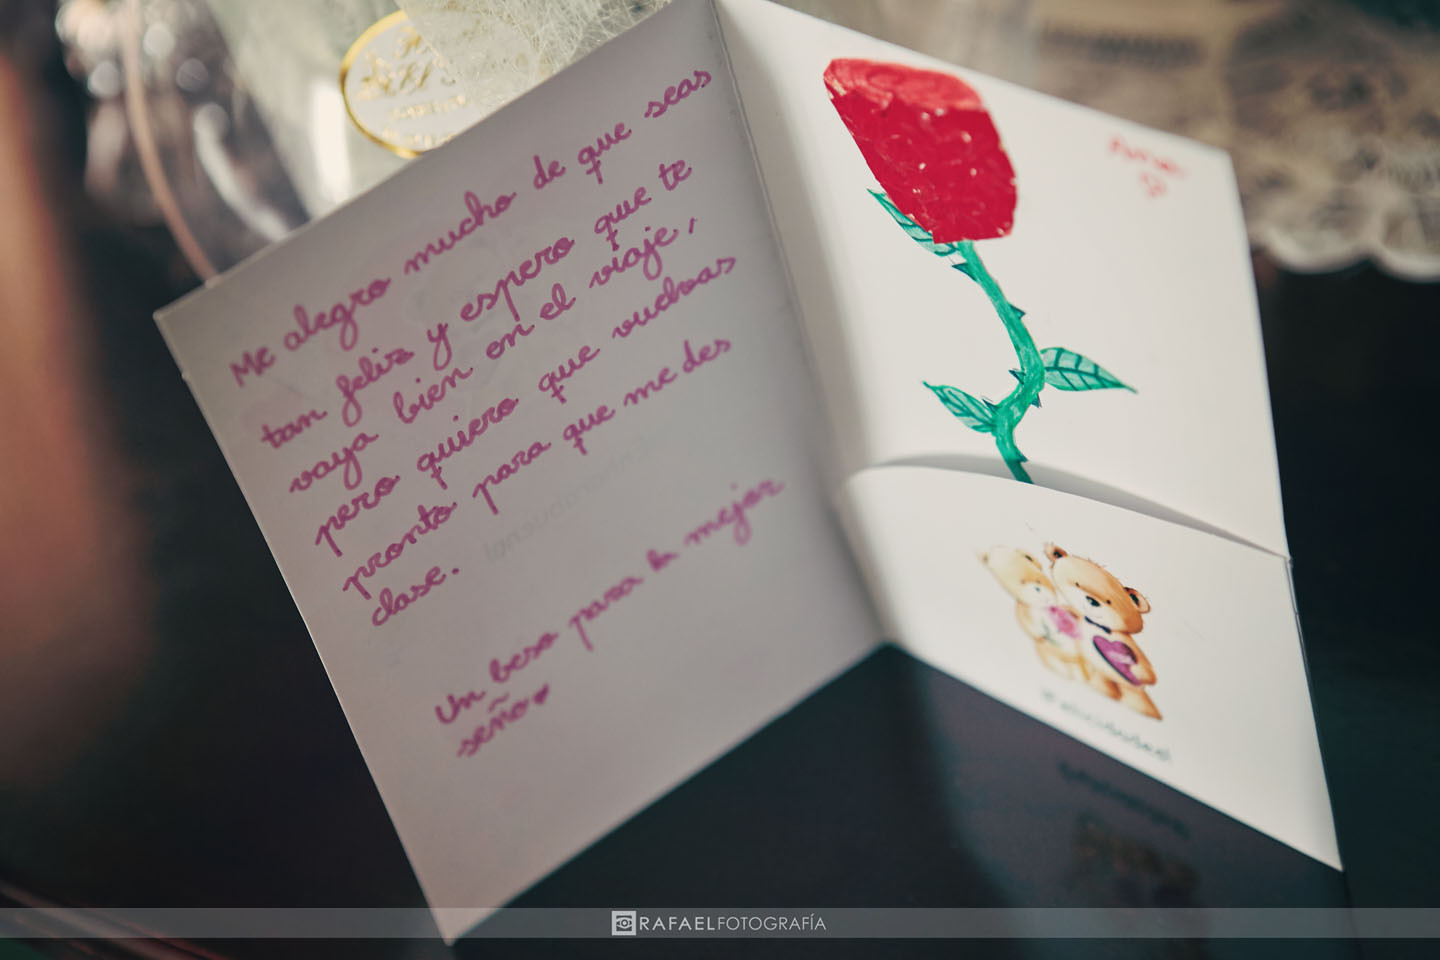 Me alegro mucho de que seas
tan feliz y espero que te
vaya bien en el viaje,
pero quiero que vuelvas
pronto para que me des
clase.
Un beso para la mejor
seño
RAFAELFOTOGRAFÍA